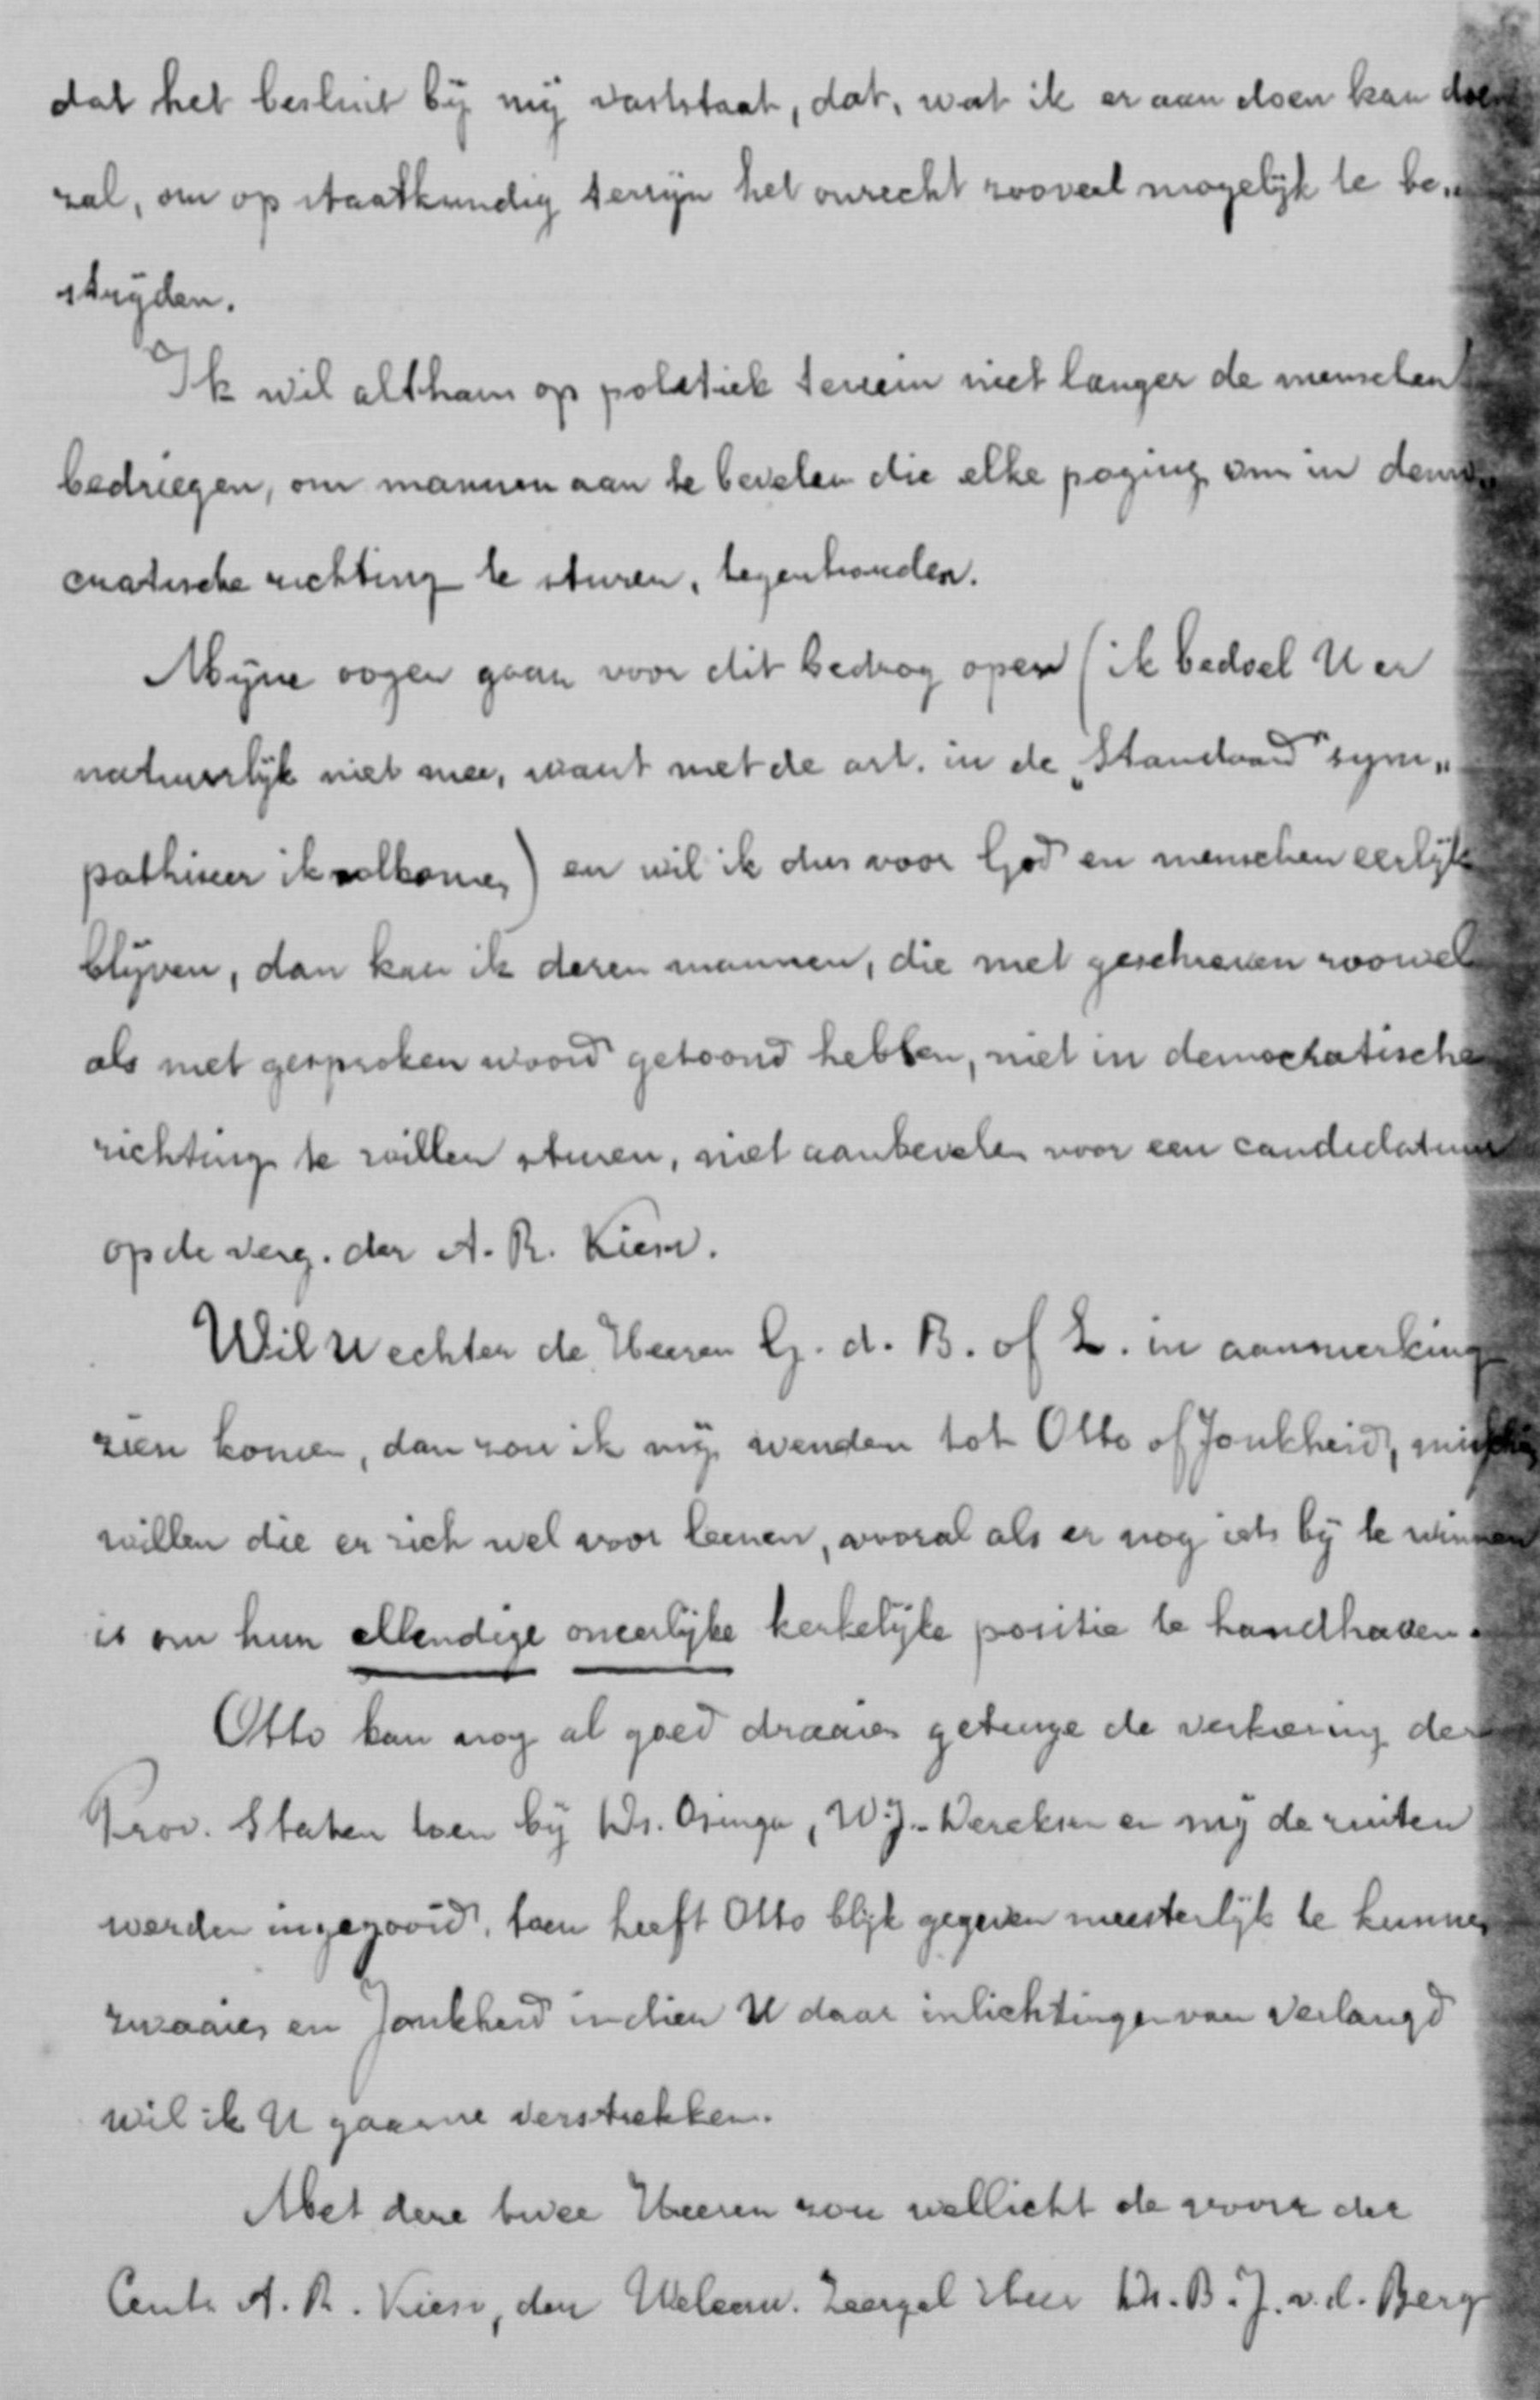 dat het besluit bij mij vaststaat, dat, wat ik er aan doen kan doen
zal, om op staatkundig terrijn het onrecht zooveel mogelijk te be„
strijden.
Ik wil althans op politiek terrein niet langer de menschen
bedriegen, om mannen aan te bevelen die elke poging om in demo„
cratische richting te sturen, tegenhouden.
Mijne oogen gaan voor dit bedrog open (ik bedoel U er
natuurlijk niet mee, want met de art. in de „Standaard" sym„
pathiseer ik volkomen) en wil ik dus voor God en menschen eerlijk
blijven, dan kan ik dezen mannen, die met geschreven zoowel
als met gesproken woord getoond hebben, niet in democratische
richting te willen sturen, niet aanbevelen voor een candidatuur
op de verg. der A. R. Kiesv.
Wil U echter de Heeren G. d. B. of L. in aanmerking
zien komen, dan zou ik mij wenden tot Otto of Jonkheid, misschien
willen die er zich wel voor leenen, vooral als er nog iets bij te winnen
is om hun ellendige oneerlijke kerkelijke positie te handhaven.
Otto kan nog al goed draaien getuige de verkiezing der
Prov. Staten toen bij Ds. Osinga, W.J. Dereksen en mij de ruiten
werden ingegooid, toen heeft Otto blijk gegeven meesterlijk te kunnen
zwaaien en Jonkheid indien U daar inlichtingen van verlangd
wil ik U gaarne verstrekken.
Met deze twee Heeren zou wellicht de voorz der
Centr A. R. Kiesv, den Weleerw. Zeergel Heer Ds. B. J. v. d. Berg